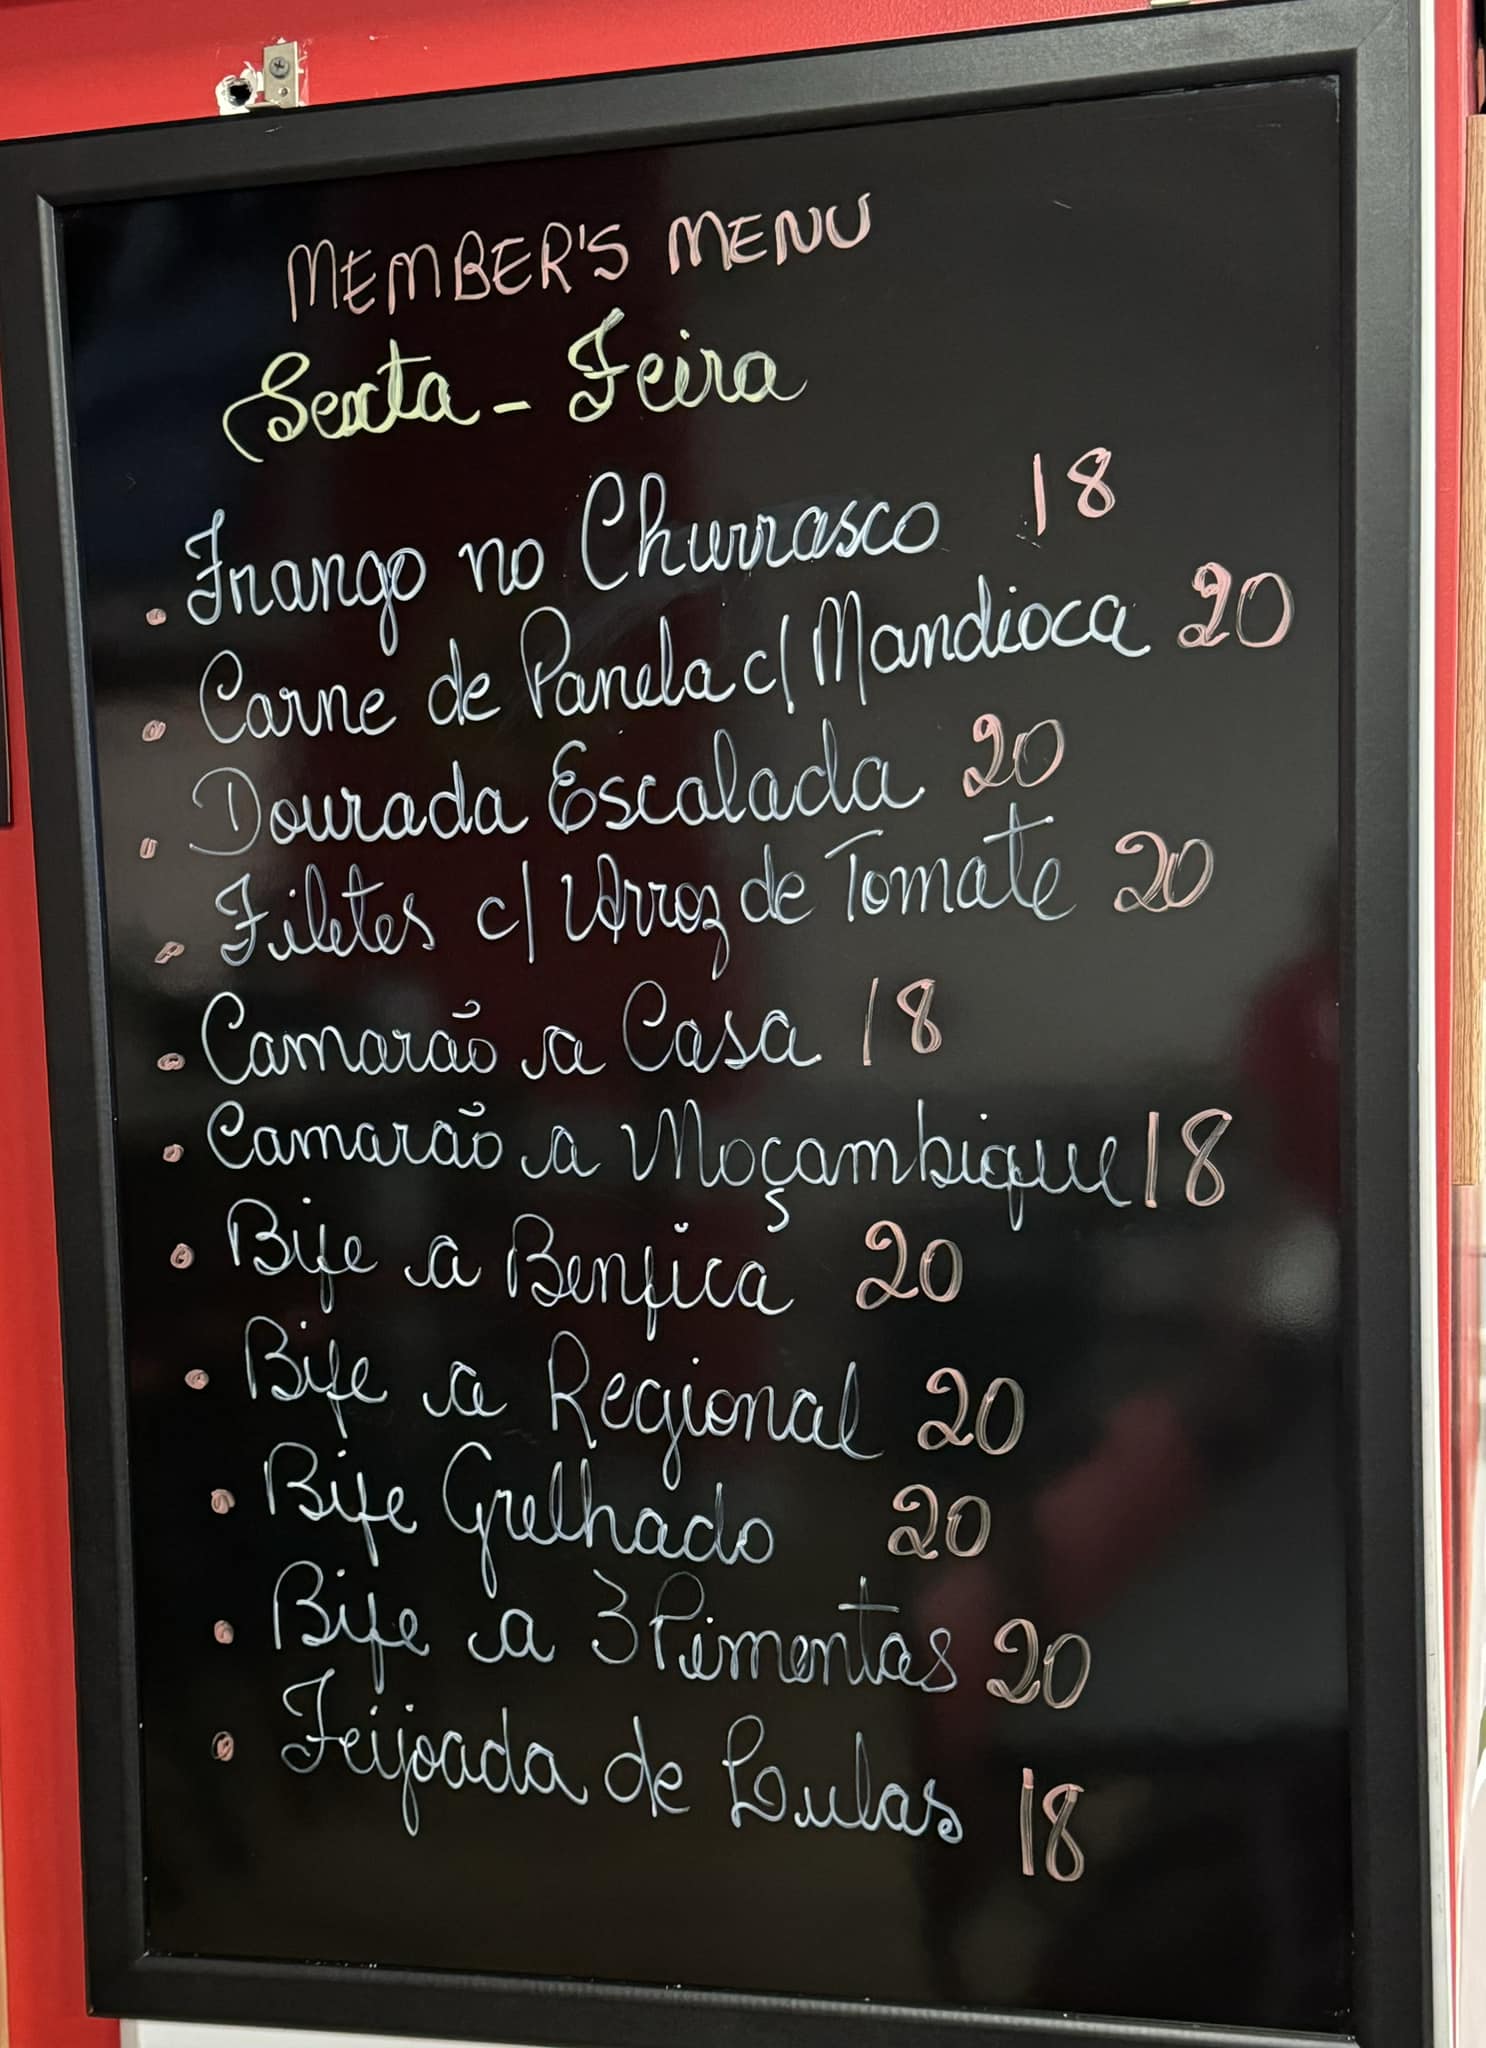 MEMBER'S MENU
Sexta-Feira
. Frango no Churrasco 18
. Carne de Panela c/ Mandioca 20
. Dourada Escalada 20
. Filetes c/ Arroz de Tomate 20
. Camarão a Casa 18
. Camarão a Moçambique 18
. Bife a Benfica 20
. Bife a Regional 20
. Bife Grelhado 20
. Bife a 3 Pimentas 20
. Feijoada de Lulas 18